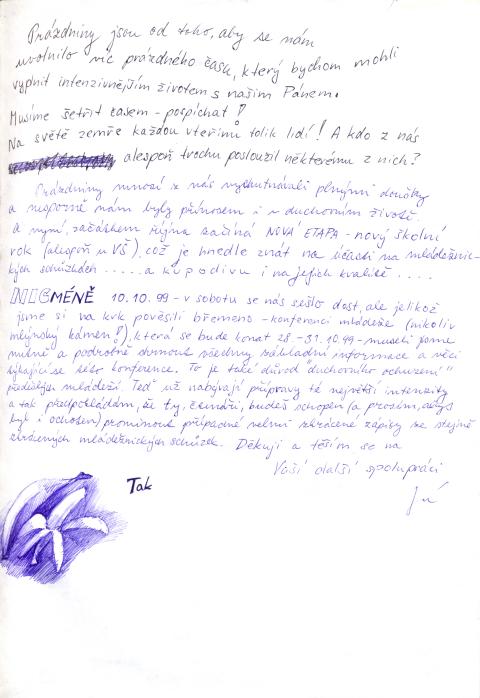 Prázdniny jsou od toho, aby se nám
uvolnilo víc prázdného času, který bychom mohli
vyplnit intenzivnějším životem s naším Pánem.
Musíme šetřit časem - pospíchat!
Na světě zemře každou vteřinu tolik lidí! A kdo z nás
alespoň trochu posloužil některému z nich?
Prázdniny mnozí z nás vychutnávali plnými doušky
a nesporně nám byly přínosem i v duchovním životě.
A nyní, začátkem října začíná NOVÁ ETAPA - nový školní
rok (alespoň u VŠ), což je hnedle znát na účasti na mládežnic-
kých schůzkách ..... a kupodivu i na jejich kvalitě ....
NICMÉNĚ 10.10.99 - v sobotu se nás sešlo dost, ale jelikož
jsme si na krk pověsili břemeno - konferenci mládeže (nikoliv
mlýnský kámen!), která se bude konat 28.-31.10.99 - museli jsme
nutně a podrobně shrnout všechny základní informace a věci
týkající se této konference. To je také důvod "duchovního ochuzení"
mládeží. Teď už nabývají přípravy té největší intenzity
a tak předpokládám, že ty, čtenáři, budeš schopen (a prosím, abys
byl i ochoten) prominout případné velmi zkrácené zápisy ze stejně
zkrácených mládežnických schůzek. Děkuji a těším se na
Vaši další spolupráci
Tak